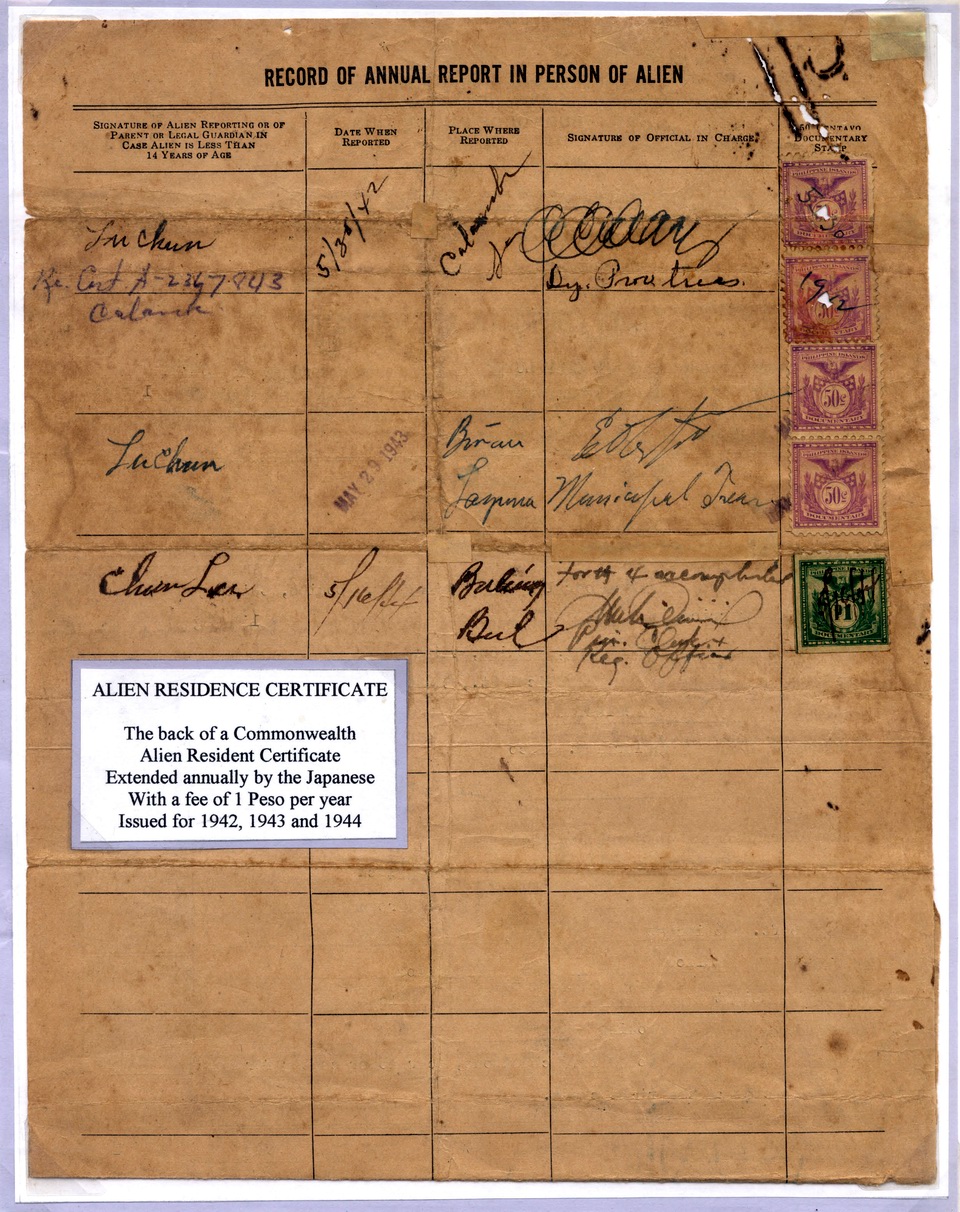 RECORD OF ANNUAL REPORT IN PERSON OF ALIEN
SIGNATURE OF ALIEN REPORTING OR OF
PARENT OR LEGAL GUARDIAN IN
CASE ALIEN IS LESS THAN
14 YEARS OF AGE
DATE WHEN
REPORTED
PLACE WHERE
REPORTED
SIGNATURE OF OFFICIAL IN CHARGE
DOCUMENTARY
STAMP
Lu Chun
5/30/42
Calamba
Re. Cert A-2367843
Dy. Prov. Treas.
PHILIPPINE ISLANDS
DOCUMENTARY
5
30
PHILIPPINE ISLANDS
50c
DOCUMENTARY
PHILIPPINE ISLANDS
50c
DOCUMENTARY
PHILIPPINE ISLANDS
50c
DOCUMENTARY
Lu Chun
MAY 29 1943
Biñan
Laguna
Municipal Treas
5/16/44
Bul
Reg. Officer
P1
DOCUMENTARY
ALIEN RESIDENCE CERTIFICATE
The back of a Commonwealth
Alien Resident Certificate
Extended annually by the Japanese
With a fee of 1 Peso per year
Issued for 1942, 1943 and 1944